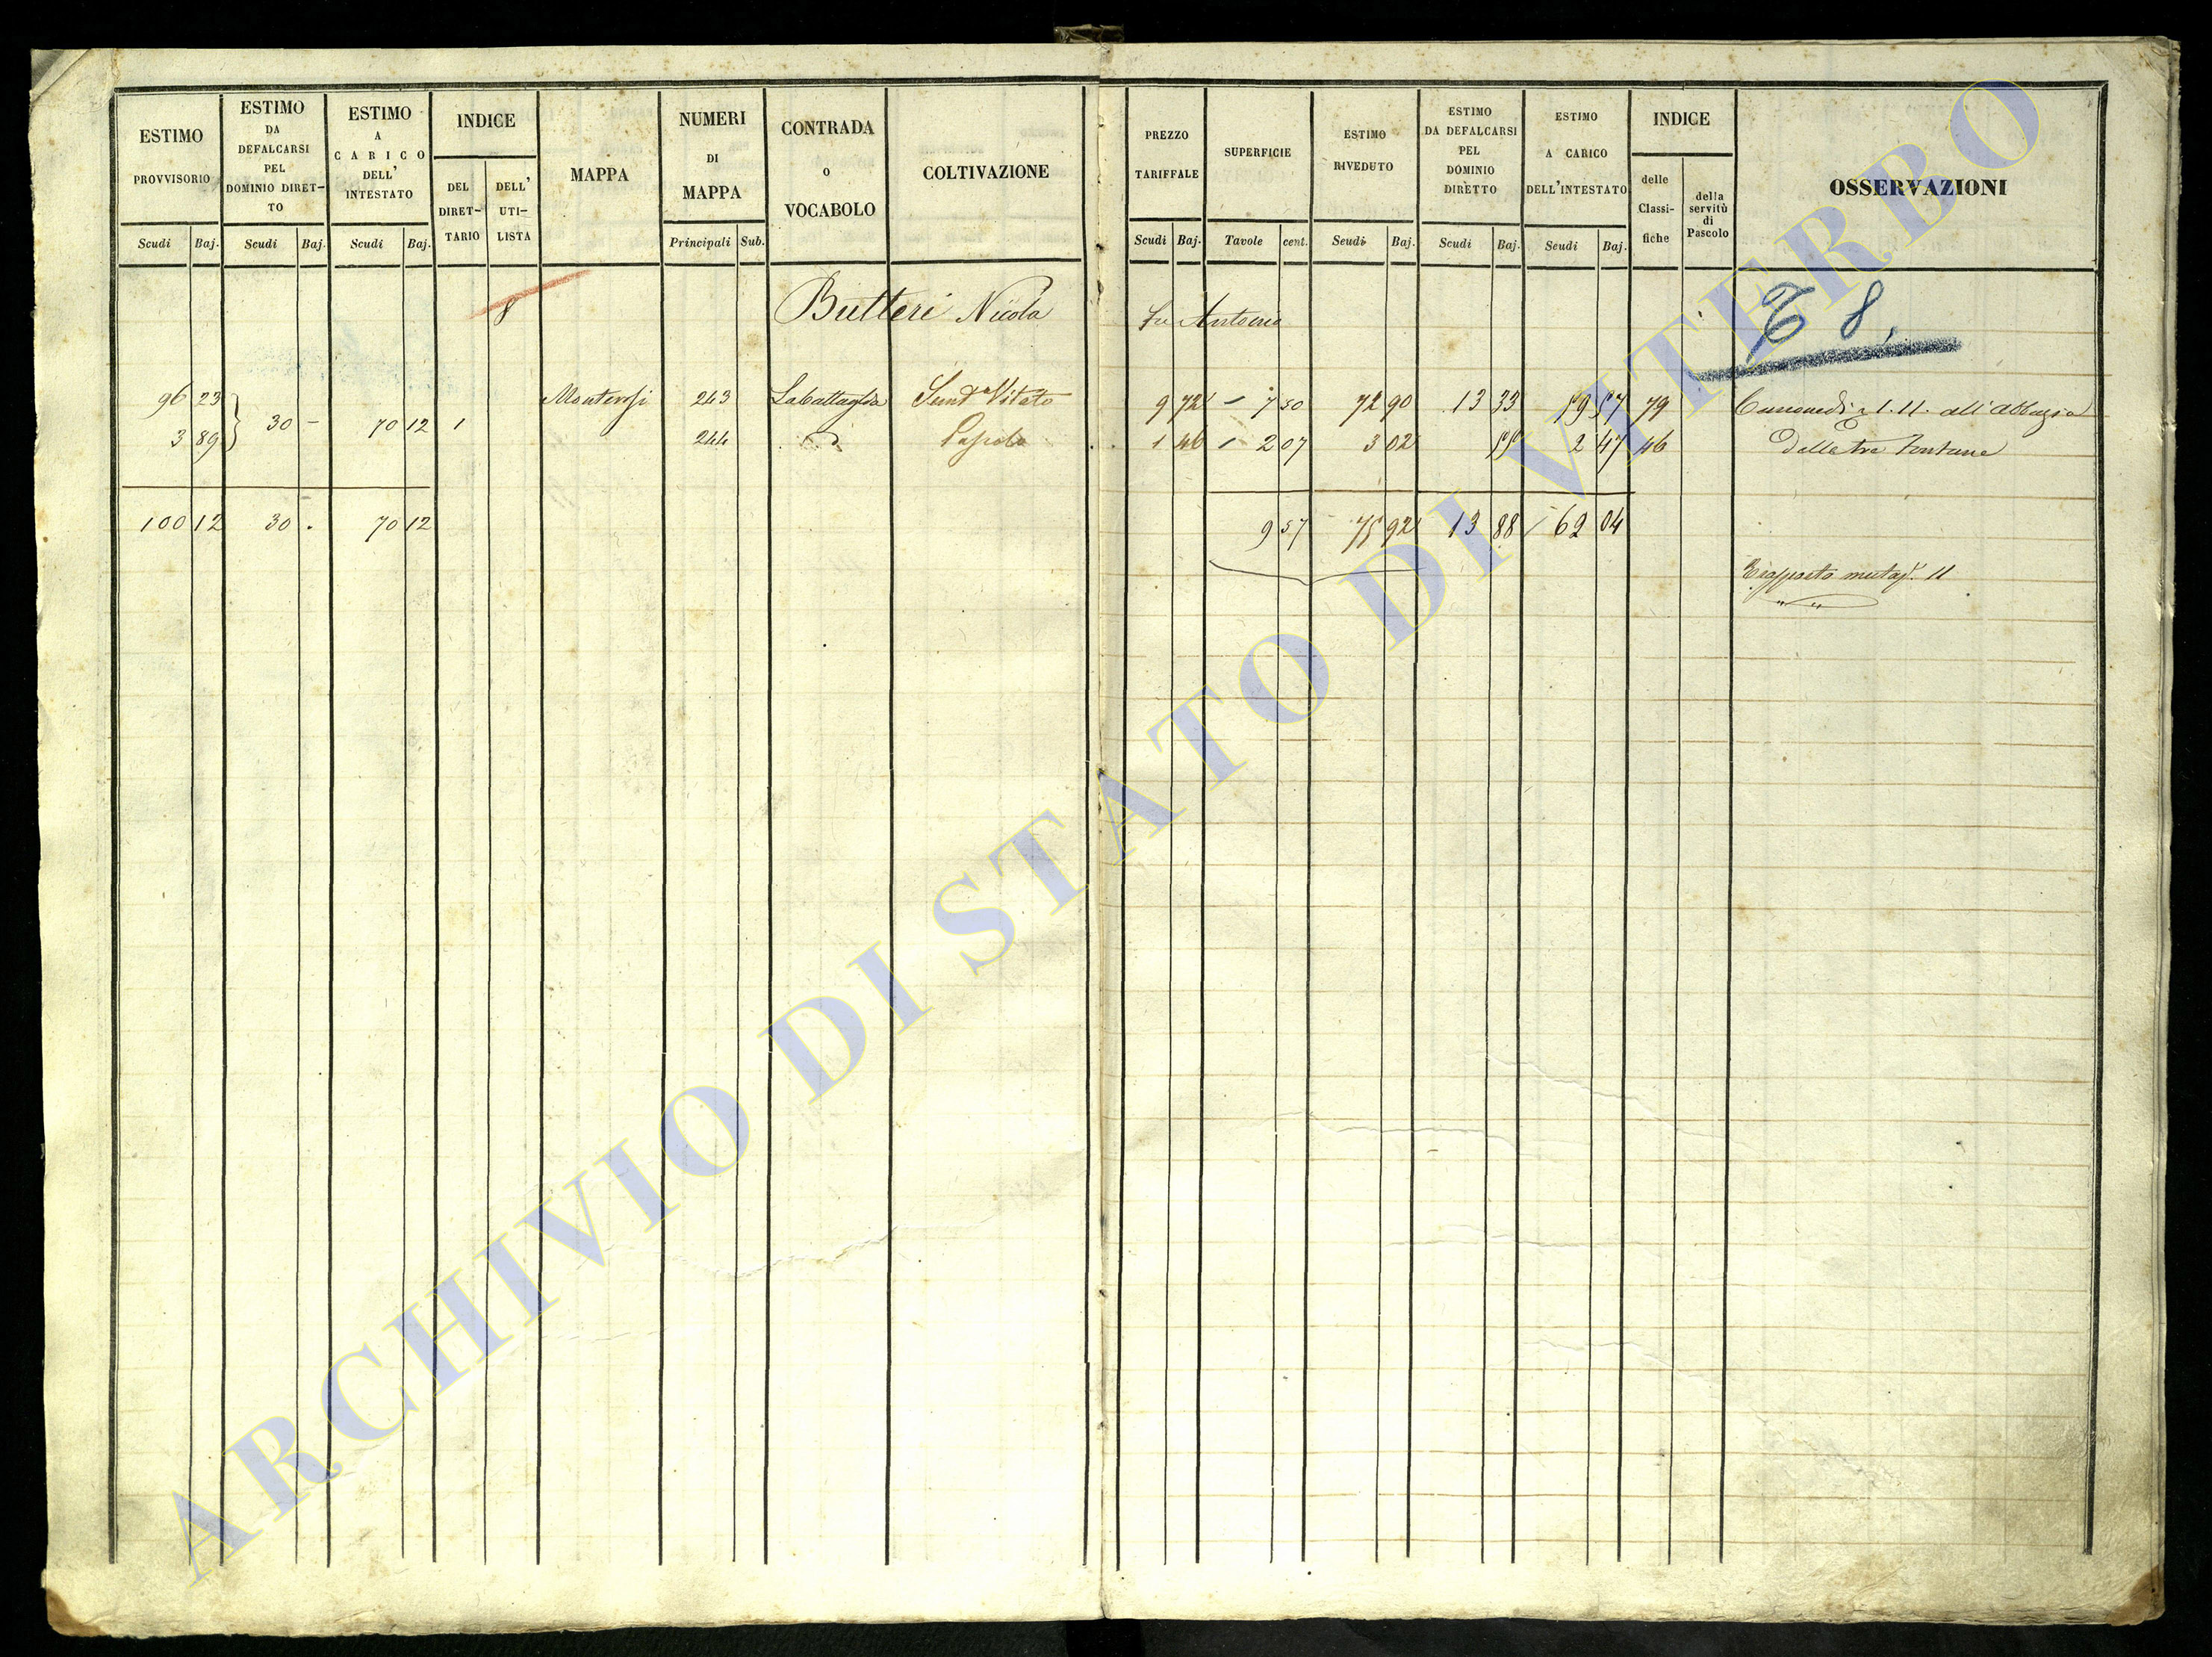 ESTIMO PROVVISORIO
Scudi Baj.
ESTIMO DA DEFALCARSI PEL DOMINIO DIRET- TO
Scudi Baj.
ESTIMO A CARICO DELL' INTESTATO
Scudi Baj.
INDICE
DEL DIRET- TARIO
DELL' UTI- LISTA
MAPPA
NUMERI DI MAPPA
Principali Sub.
CONTRADA O VOCABOLO
COLTIVAZIONE
PREZZO TARIFFALE
Scudi Baj.
SUPERFICIE
Tavole cent.
ESTIMO RIVEDUTO
Scudi Baj.
ESTIMO DA DEFALCARSI PEL DOMINIO DIRETTO
Scudi Baj.
ESTIMO A CARICO DELL'INTESTATO
Scudi Baj.
INDICE
delle Classi- fiche
della servitù di Pascolo
OSSERVAZIONI
8 Butteri Nicola fu Antonio
8.
96 23 30 - 70 12 1 Monterosi 243 La battaglia Semvo Vitato 9 72 7 50 72 90 13 33 59 57 79 Canone di 1.11. all'abbazia
3 89 244 Pascolo 1 46 2 07 3 02 55 2 47 46 delle tre Fontane
100 12 30 . 70 12 9 57 75 92 13 88 62 04
11
ARCHIVIO DI STATO DI VITERBO